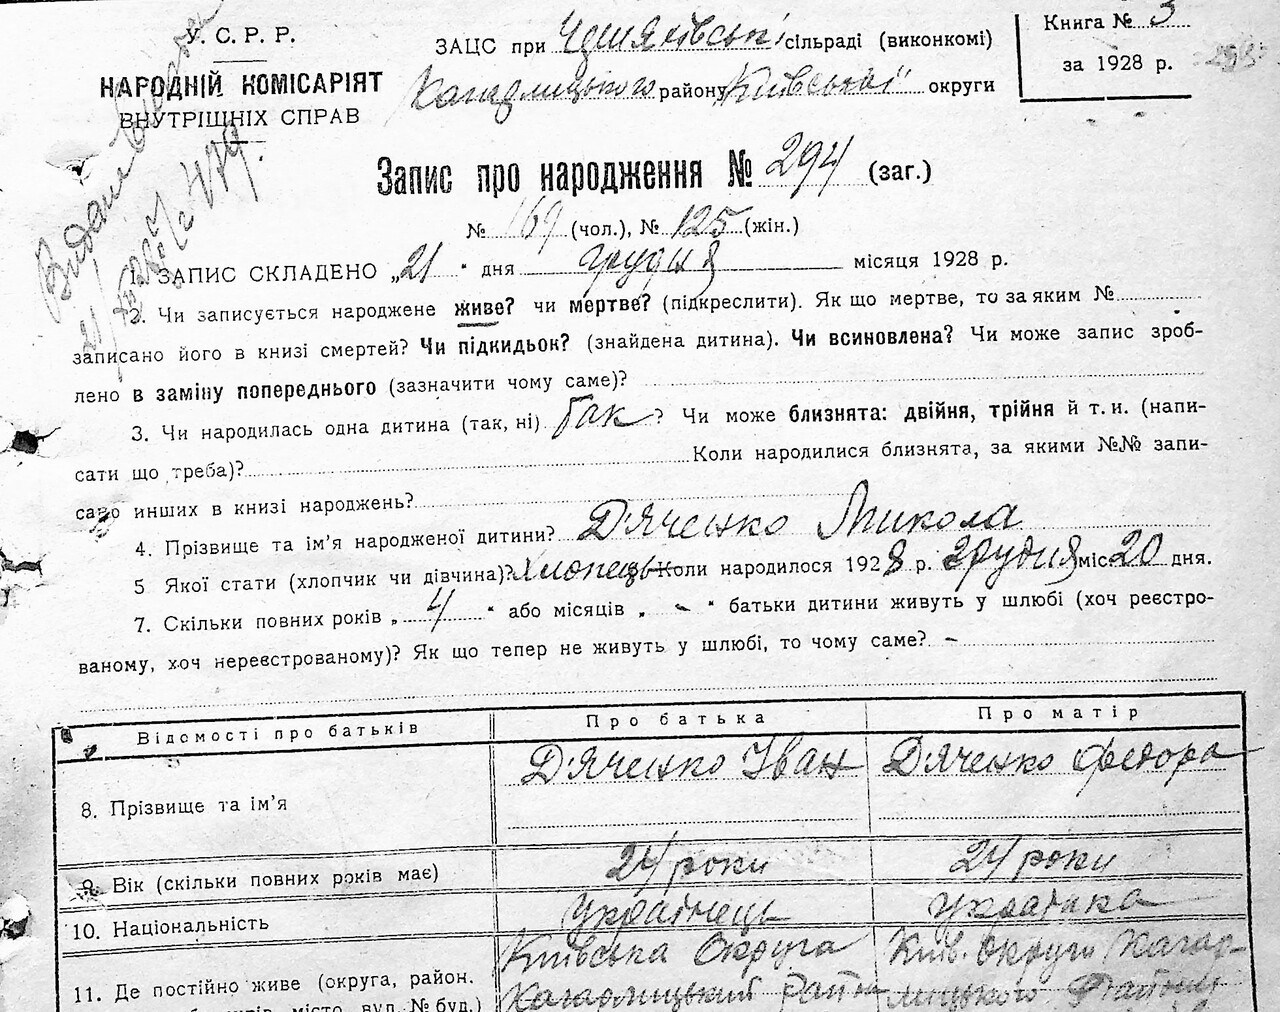 У. С. Р. Р.
НАРОДНІЙ КОМІСАРІЯТ
ВНУТРІШНІХ СПРАВ
ЗАЦС при сільраді (виконкомі)
Кагарлицького району Київської округи
Книга № 3
за 1928 р.
Видано
21/
Запис про народження № 294 (заг.)
№ 169 (чол.), № 125 (жін.)
1. ЗАПИС СКЛАДЕНО „21 " дня грудня місяця 1928 р.
2. Чи записується народжене живе? чи мертве? (підкреслити). Як що мертве, то за яким №
записано його в книзі смертей? Чи підкидьок? (знайдена дитина). Чи всиновлена? Чи може запис зроб-
лено в заміну попереднього (зазначити чому саме)?
3. Чи народилась одна дитина (так, ні) Так ? Чи може близнята: двійня, трійня й т. и. (напи-
сати що треба)? Коли народилися близнята, за якими №№ запи-
сано инших в книзі народжень?
4. Прізвище та ім'я народженої дитини? Д'яченко Микола
5 Якої стати (хлопчик чи дівчина)? Хлопець Коли народилося 1928 р. Грудня міс. 20 дня.
7. Скільки повних років „ 4 " або місяців „ - " батьки дитини живуть у шлюбі (хоч реєстро-
ваному, хоч нереєстрованому)? Як що тепер не живуть у шлюбі, то чому саме? -
Відомості про батьків Про батька Про матір
8. Прізвище та ім'я Д'яченко Іван Д'яченко Федора
9. Вік (скільки повних років має) 24 роки 24 роки
10. Національність Українець Українка
11. Де постійно живе (округа, район, Київська Округа Київ. округи Кагар-
місто, вул. № буд.) Кагарлицький Район лицького Району